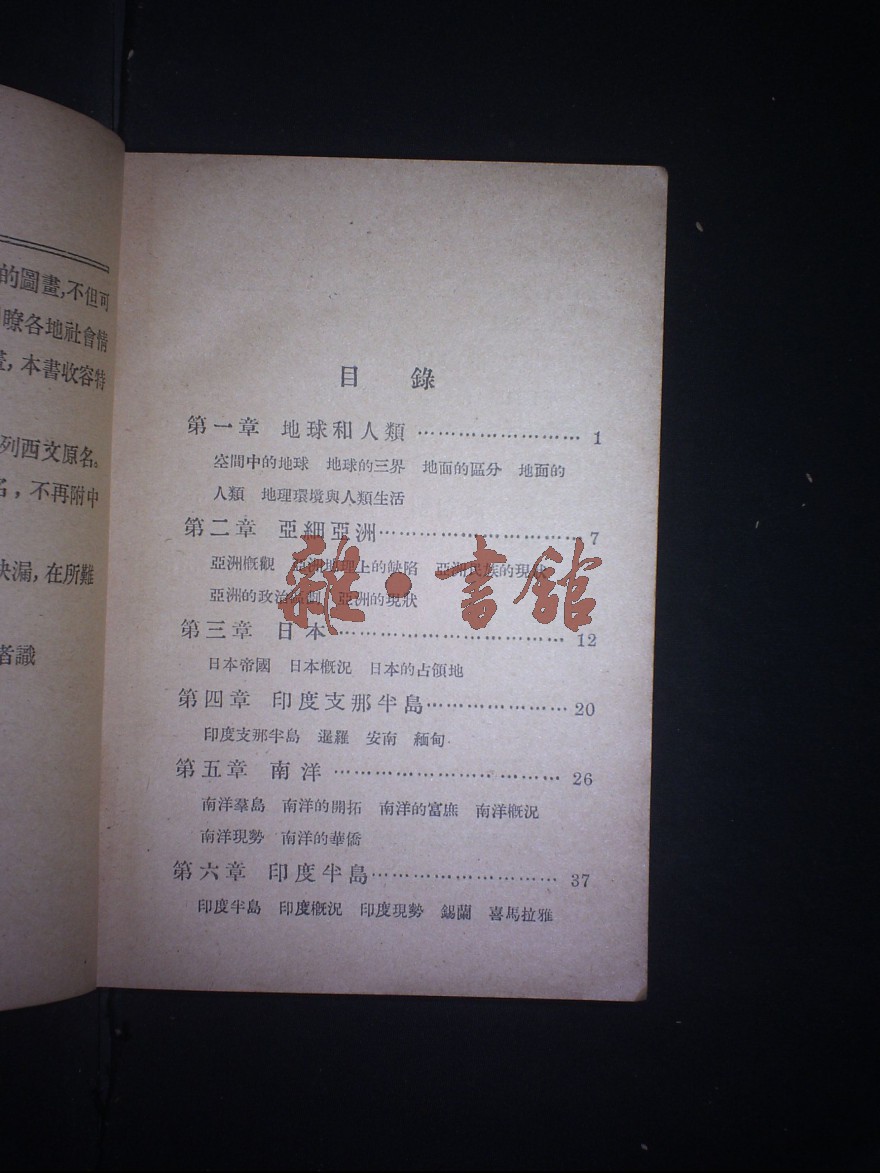 的圖畫,不但可
瞭各地社會情
畫,本書收容特
列西文原名。
名,不再附中
缺漏,在所難
者識
目 錄
第一章 地球和人類 …………………… 1
空間中的地球 地球的三界 地面的區分 地面的
人類 地理環境與人類生活
第二章 亞細亞洲…………………… 7
亞洲概觀 亞洲地理上的缺陷 亞洲民族的現狀
亞洲的政治區劃 亞洲的現狀
雜·書館
第三章 日本…………………… 12
日本帝國 日本概況 日本的占領地
第四章 印度支那半島…………………… 20
印度支那半島 暹羅 安南 緬甸
第五章 南洋…………………… 26
南洋羣島 南洋的開拓 南洋的富庶 南洋概況
南洋現勢 南洋的華僑
第六章 印度半島…………………… 37
印度半島 印度概況 印度現勢 錫蘭 喜馬拉雅